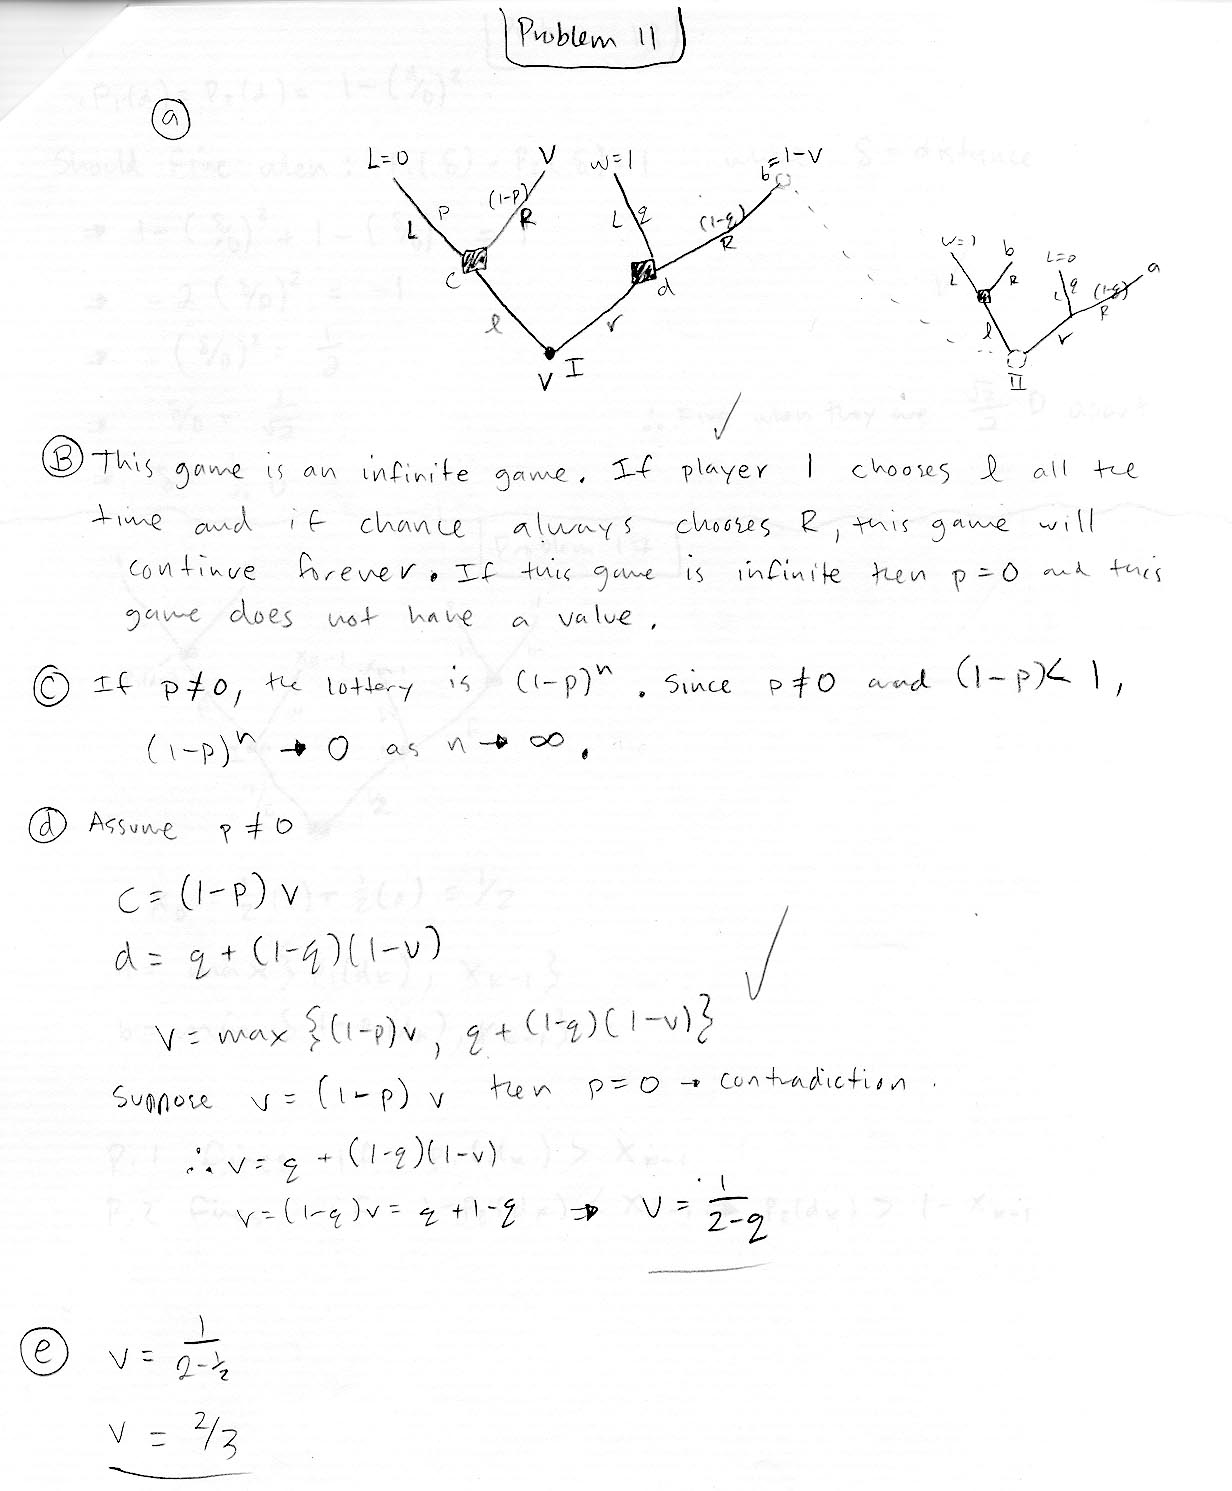 Problem 11
a
L=0
V
W=1
b=1-V
p
(1-p)
q
(1-q)
L
R
L
R
c
d
l
r
V
I
W=1
b
L=0
a
L
R
L
q
(1-q)
R
l
r
II
B This game is an infinite game. If player 1 chooses l all the
time and if chance always chooses R, this game will
continue forever. If this game is infinite then p=0 and this
game does not have a value.
C If p≠0, the lottery is (1-p)ⁿ. Since p≠0 and (1-p)<1,
(1-p)ⁿ → 0 as n → ∞.
d Assume p≠0
C = (1-p) v
d = q + (1-q)(1-v)
V = max {(1-p)v, q + (1-q)(1-v)}
Suppose v = (1-p) v then p=0 → contradiction.
∴ v = q + (1-q)(1-v)
v = (1-q)v = q + 1-q ⇒ V = 1/(2-q)
e V = 1/(2-½)
V = 2/3